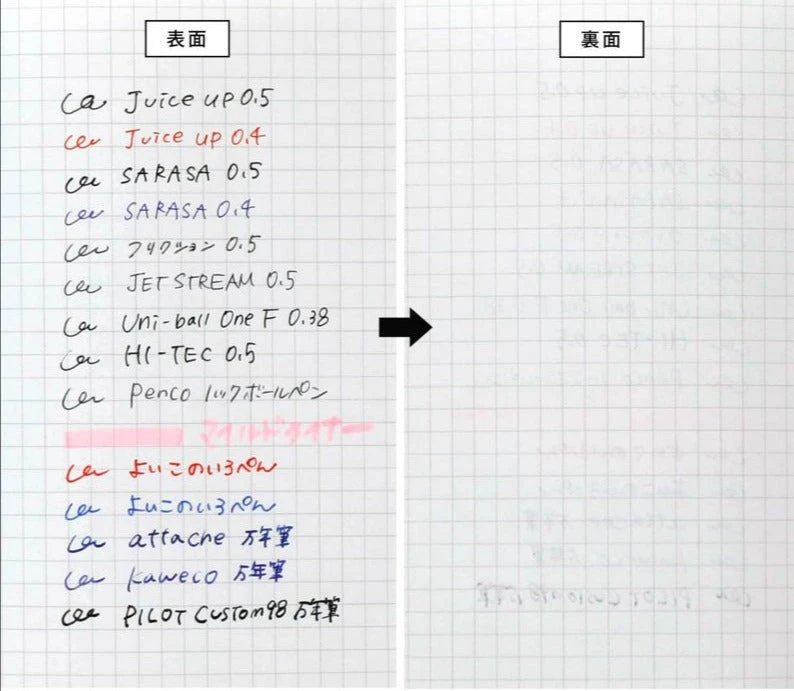 表面
ca Juice up 0.5
ca Juice up 0.4
ca SARASA 0.5
ca SARASA 0.4
ca フリクション 0.5
ca JETSTREAM 0.5
ca Uni-ball One F 0.38
ca HI-TEC 0.5
ca Penco ノックボールペン
マイルドライナー
ca よいこのいろぺん
ca よいこのいろぺん
ca attache 万年筆
ca kaweco 万年筆
ca PILOT CUSTOM98 万年筆
裏面